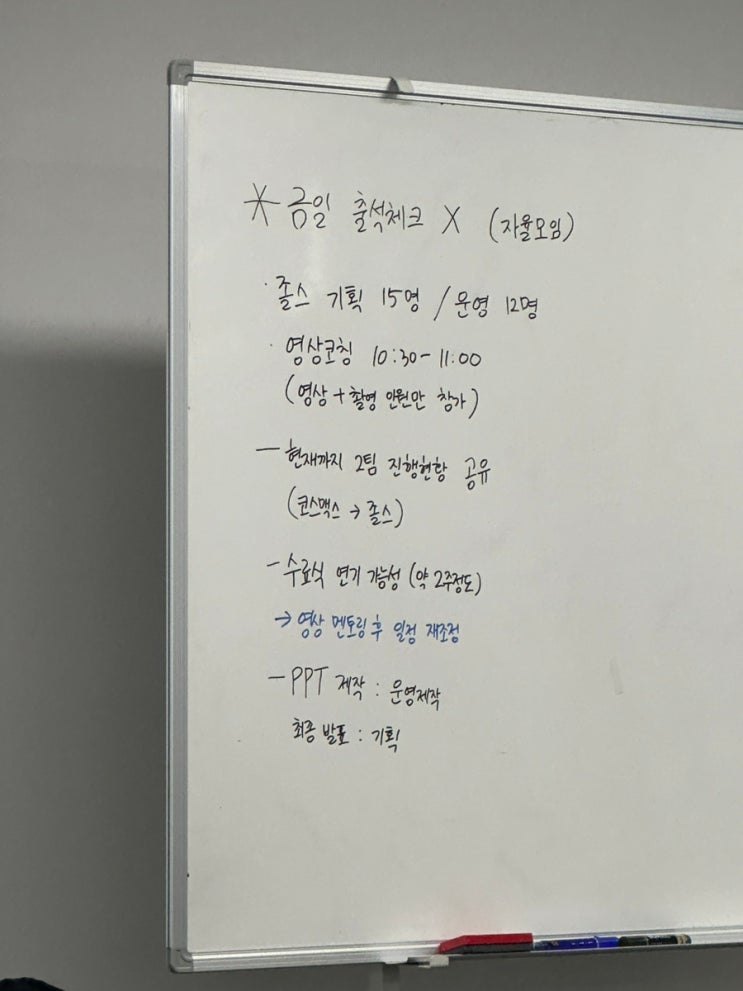 * 금일 출석체크 X (자율모임)
· 졸스 기획 15명 / 운영 12명
· 영상코칭 10:30-11:00
(영상+촬영 인원만 참가)
- 현재까지 2팀 진행현황 공유
(코스맥스 → 졸스)
- 수료식 연기 가능성 (약 2주정도)
→ 영상 멘토링 후 일정 재조정
- PPT 제작 : 운영제작
최종 발표 : 기획